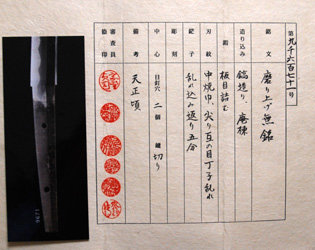 第九千六百七十一号
銘文 磨り上げ無銘
造り込み 鎬造り、庵棟
鍛 板目詰む
刃紋 中焼巾、尖り互の目丁子乱れ
鋩子 乱れ込み返り五分
彫刻
中心 目釘穴 二個 鑢 切り
備考 天正頃
審査員
捺印
9671